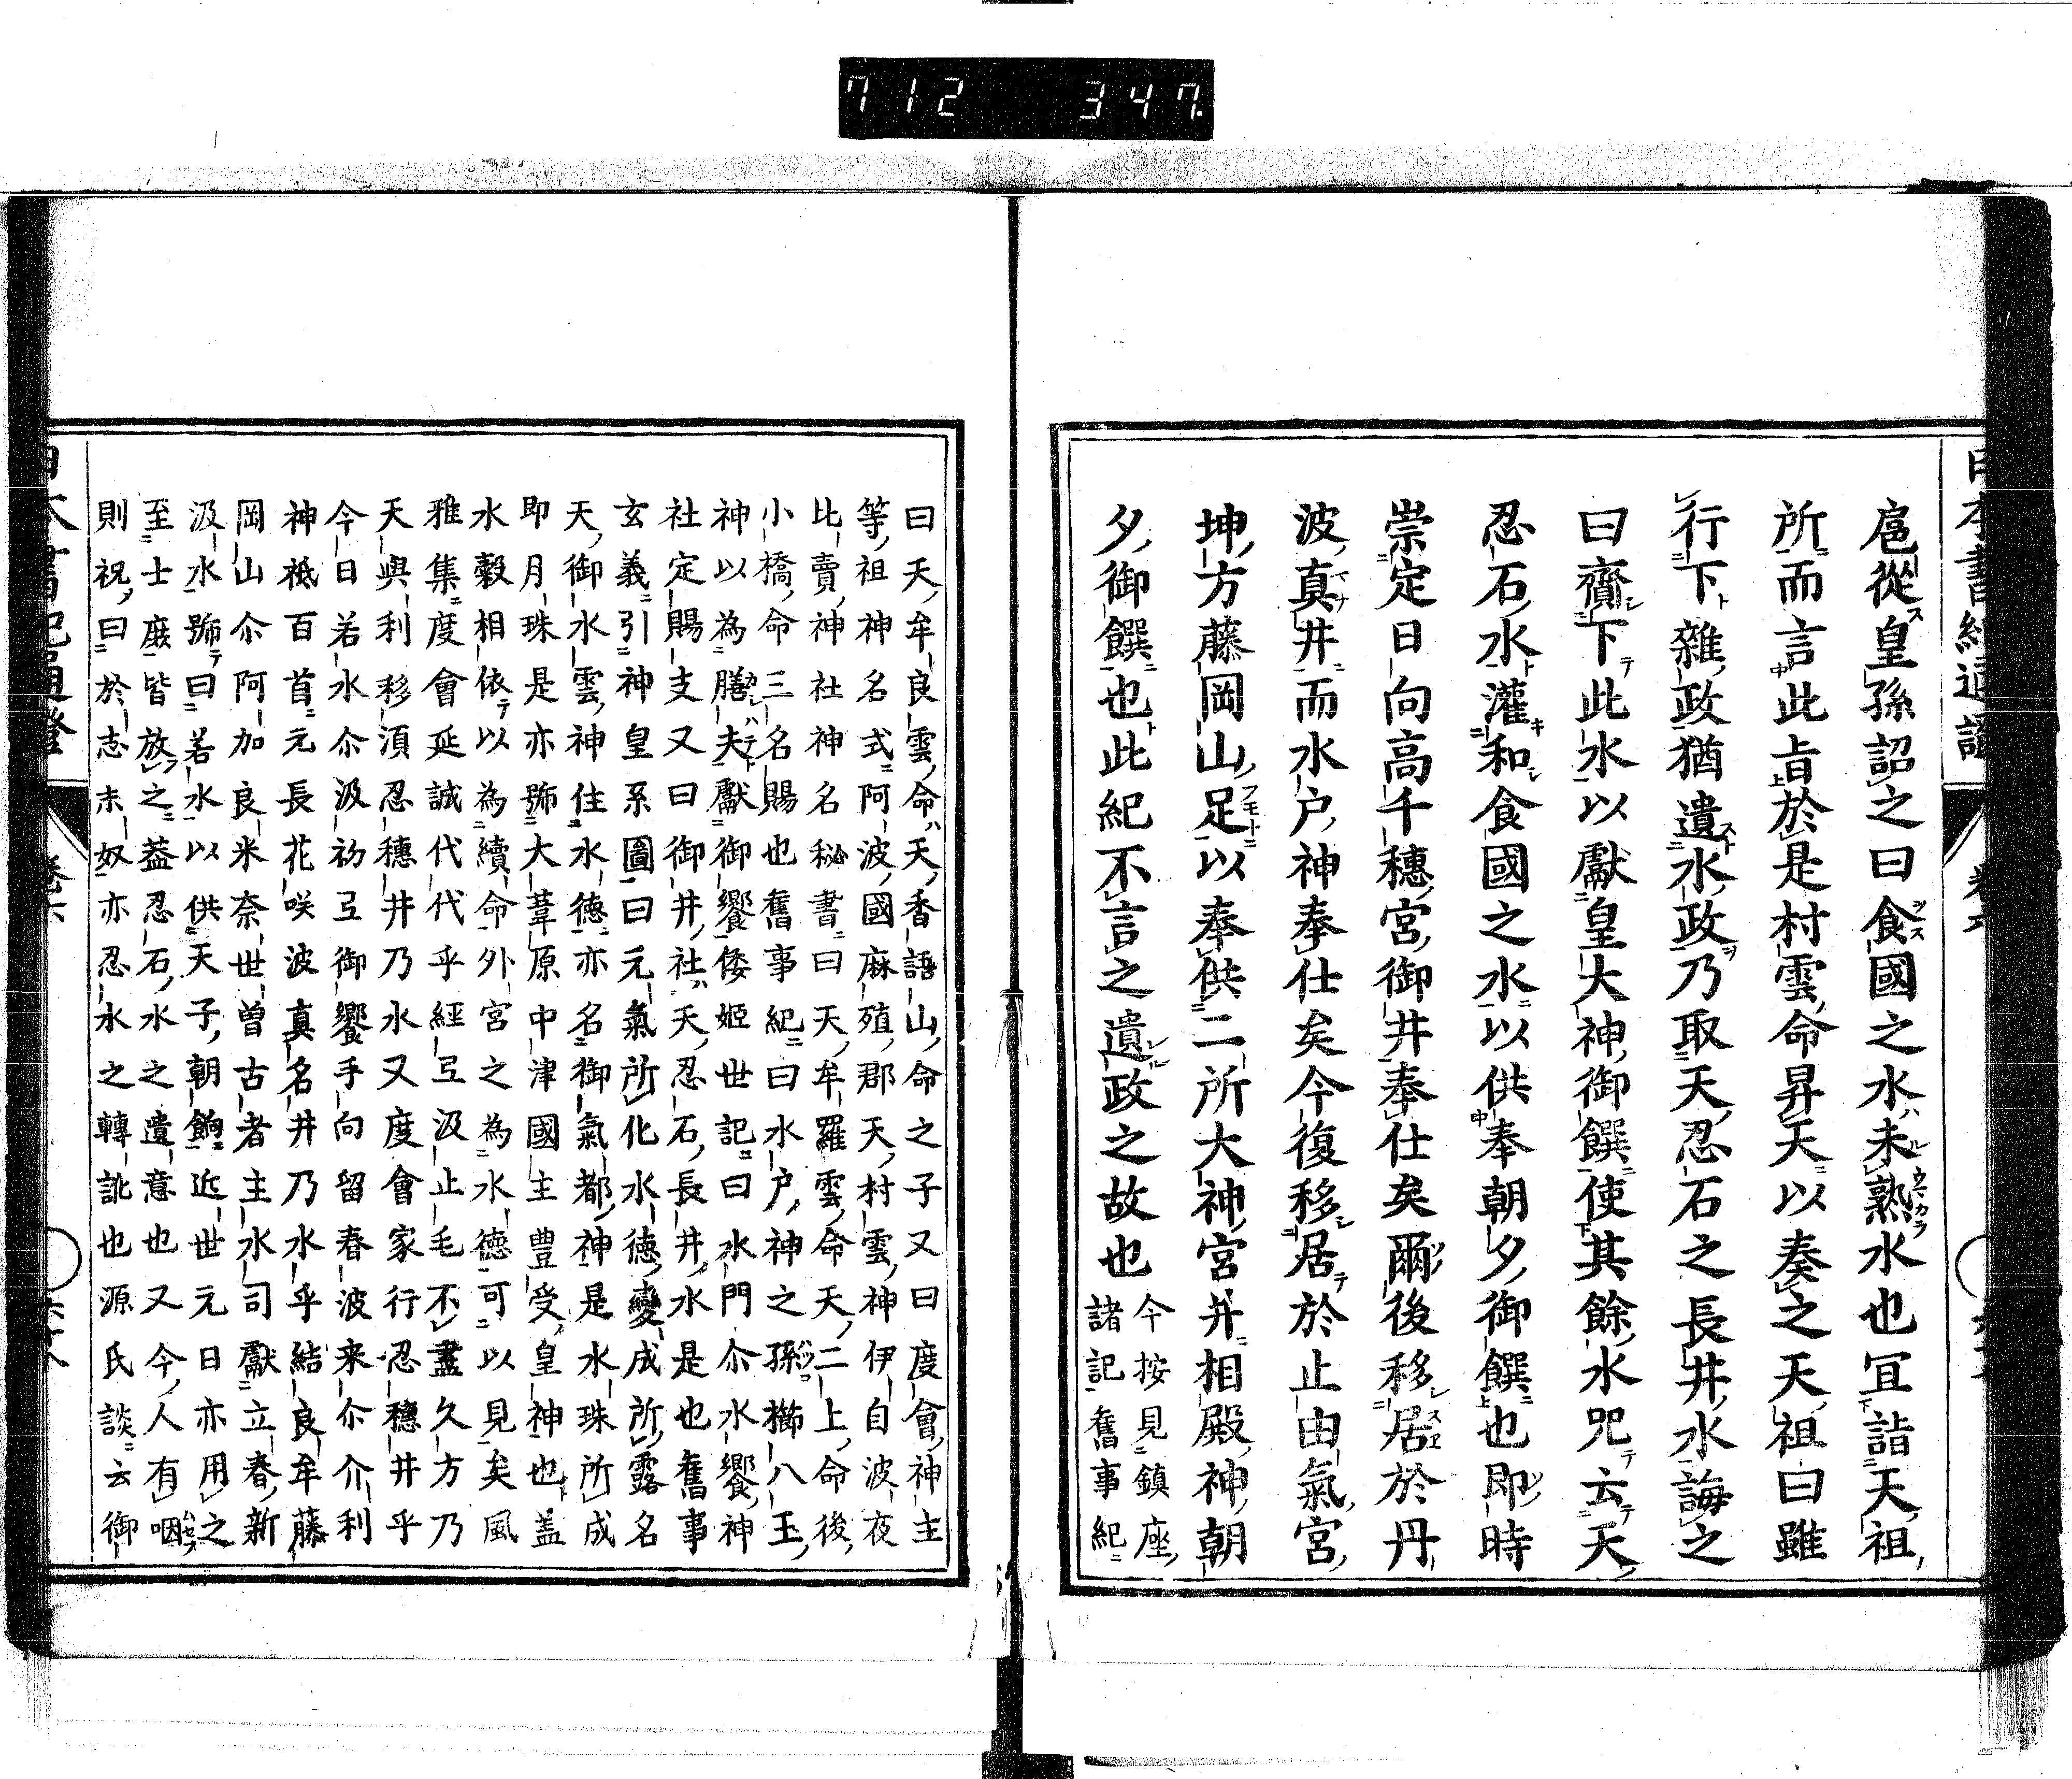 712 347.
扈從皇孫詔之曰食國之水未熟水也宜詣天祖
所而言此旨於是村雲命昇天以奏之天祖曰雖
行下雜政猶遺水政乃取天忍石之長井水誨之
曰齎下此水以獻皇大神御饌使其餘水咒云天
忍石水灌和食國之水以供奉朝夕御饌也即時
崇定日向高千穗宮御井奉仕矣爾後移居於丹
波真井而水戶神奉仕矣今復移居於止由氣宮
坤方藤岡山足以奉供二所大神宮并相殿神朝
夕御饌也此紀不言之遺政之故也
今按見鎮座
諸記舊事紀
曰天牟良雲命ハ天香語山命之子又曰度會神主
等祖神名式阿波國麻殖郡天村雲神伊自波夜
比賣神社神名秘書曰天牟羅雲命天二上命後
小橋命三名賜也舊事紀曰水戶神之孫櫛八玉
神以為膳夫獻御饗倭姬世記曰水門尒水饗神
社定賜支又曰御井社ハ天忍石長井水是也舊事
玄義引神皇系圖曰元氣所化水德變成所露名
天御水雲神住水德亦名御氣都神是水珠所成
即月珠是亦號大葦原中津國主豊受皇神也蓋
水穀相依テ以為續命外宮之為水德可以見矣風
雅集度會延誠代代乎經弖汲止毛不盡久方乃
天與利移須忍穗井乃水又度會家行忍穗井乎
今日若水尒汲初弖御饗手向留春波来尒介利
神祗百首元長花咲波真名井乃水乎結良牟藤
岡山尒阿加良米奈世曽古者主水司獻立春新
汲水號テ曰若水以供天子朝餉近世元日亦用之
至士庶皆放之蓋忍石水之遺意也又今人有咽
則祝曰於志未奴亦忍水之轉訛也源氏談云御